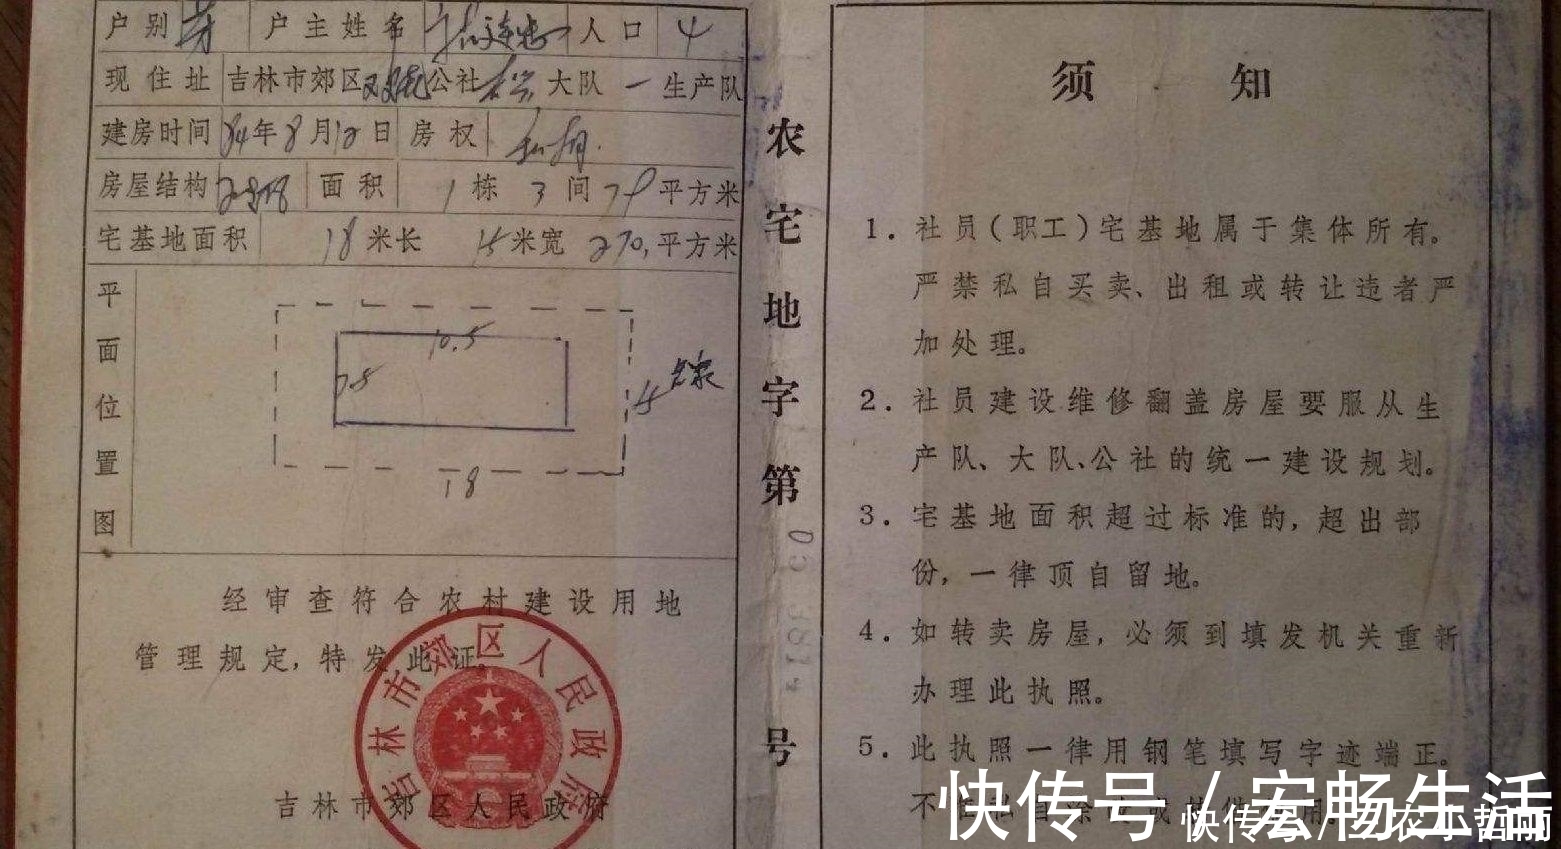 户别 户主姓名 人口 4
现住址 吉林市郊区 公社 大队 一 生产队
建房时间 84年8月12日 房权 私有.
房屋结构 面积 1 栋 3 间 79 平方米
宅基地面积 18 米长 15 米宽 270. 平方米
平面位置图
10.5
7.5
15
18
经审查符合农村建设用地
管理规定,特发此证。
吉林市郊区人民政府
吉林市郊区人民政府
农宅地字第
号
须 知
1. 社员(职工)宅基地属于集体所有。
严禁私自买卖、出租或转让违者严
加处理。
2. 社员建设维修翻盖房屋要服从生
产队、大队、公社的统一建设规划。
3. 宅基地面积超过标准的,超出部
份,一律顶自留地。
4. 如转卖房屋,必须到填发机关重新
办理此执照。
5. 此执照一律用钢笔填写字迹端正。
不
快传号 / 宏畅生活
快传号 /